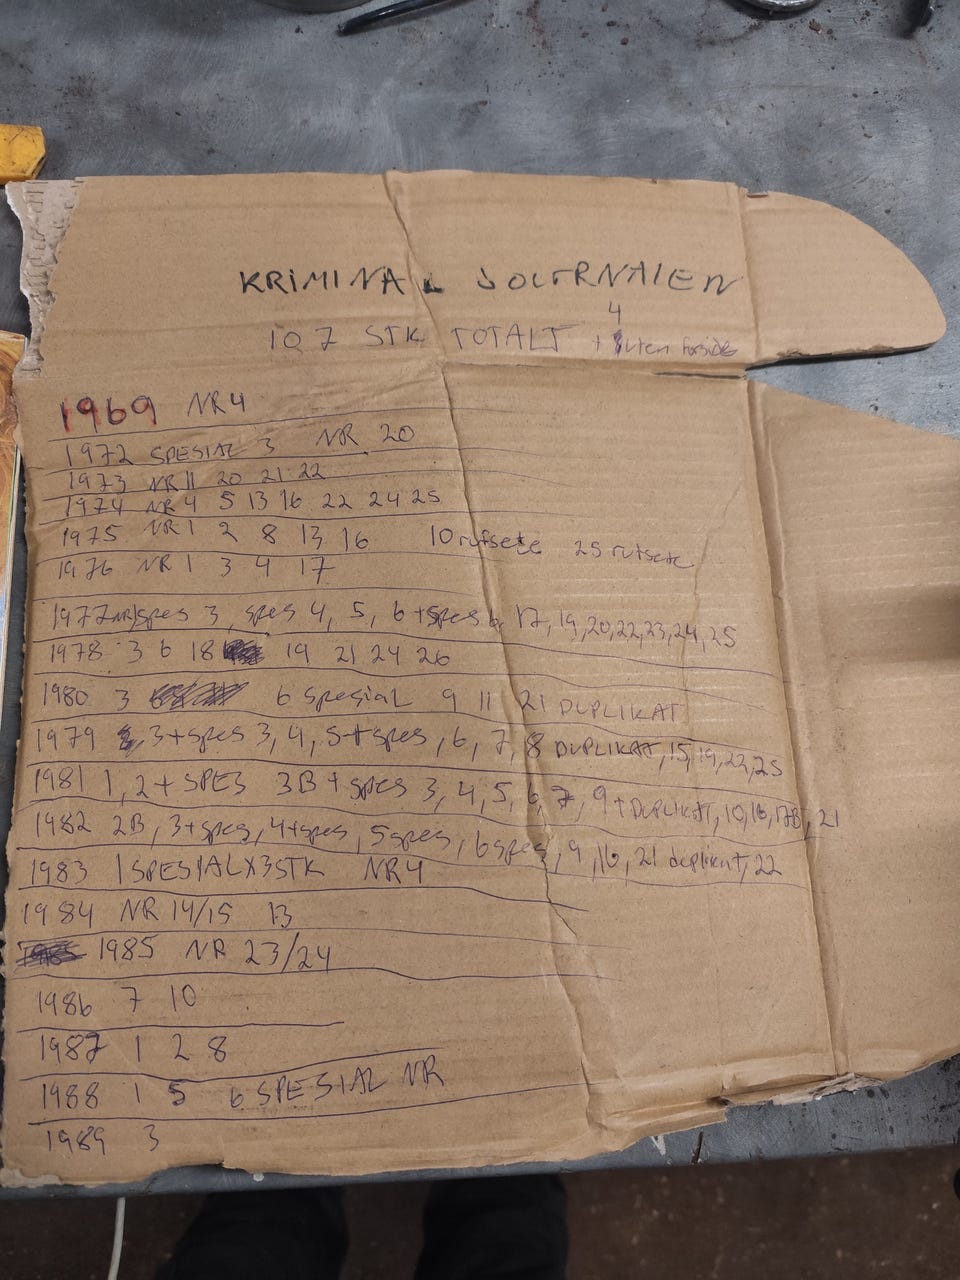 KRIMINAL JOURNALEN
107 STK TOTALT + 4 uten forside
1969 NR 4
1972 SPESIAL 3 NR 20
1973 NR 11 20 21 22
1974 NR 4 5 13 16 22 24 25
1975 NR 1 2 8 13 16 10 rufsete 25 rufsete
1976 NR 1 3 4 17
1977 NR 1 spes 3, spes 4, 5, 6 + spes 6, 17, 19, 20, 22, 23, 24, 25
1978 3 6 18 19 21 24 26
1980 3 6 spesiaL 9 11 21 DUPLIKAT
1979 3 + spes 3, 4, 5 + spes, 6, 7, 8 DUPLIKAT, 15, 19, 23, 25
1981 1, 2 + SPES 3B + spes 3, 4, 5, 6, 7, 9 + DUPLIKAT, 10, 16, 17B, 21
1982 2B, 3 + spes, 4 + spes, 5 spes, 6 spes, 9, 16, 21 duplikat, 22
1983 1 SPESIAL X 3 STK NR 4
1984 NR 14/15 13
1985 NR 23/24
1986 7 10
1987 1 2 8
1988 1 5 6 SPESIAL NR
1989 3